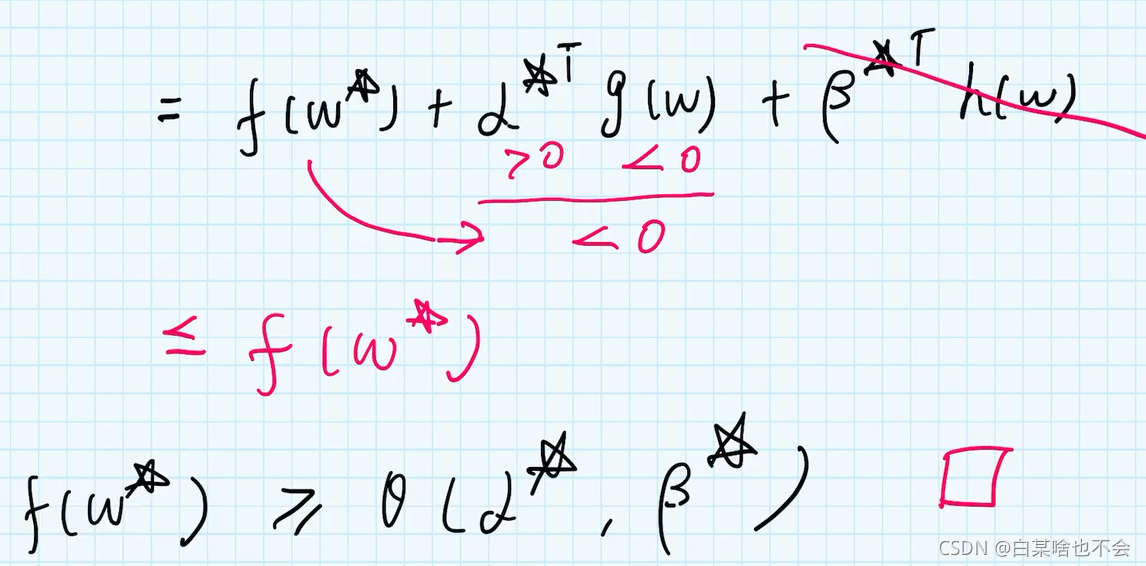 = f(w☆) + α☆ᵀ g(w) + β☆ᵀ h(w)
>0 <0
<0
≤ f(w☆)
f(w☆) ≥ θ(α☆, β☆) □
CSDN @白某啥也不会